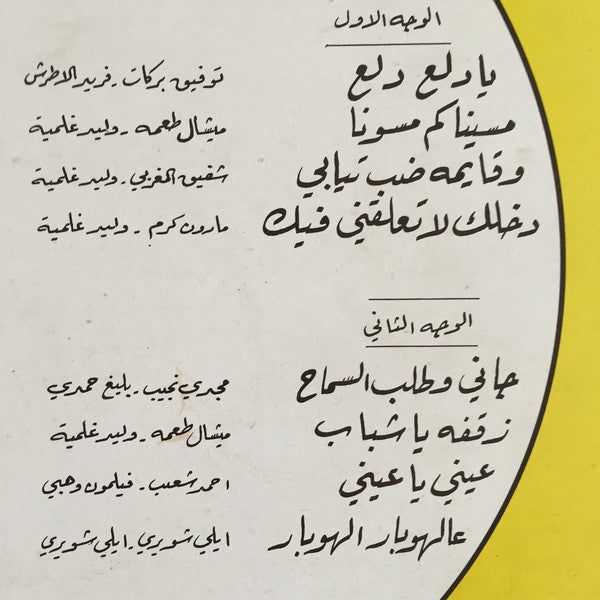 الوجه الاول
يا دلع دلع توفيق بركات - فريد الاطرش
مسيناكم مسونا ميشال طعمه - وليد غلمية
وقايمه ضب تيابي شفيق المغربي - وليد غلمية
دخلك لا تعلقني فيك مارون كرم - وليد غلمية
الوجه الثاني
جاني وطلب السماح مجدي نجيب - بليغ حمدي
زقفه يا شباب ميشال طعمه - وليد غلمية
عيني يا عيني احمد شعيب - فيلمون وهبي
عالهوبار الهوبار ايلي شويري - ايلي شويري